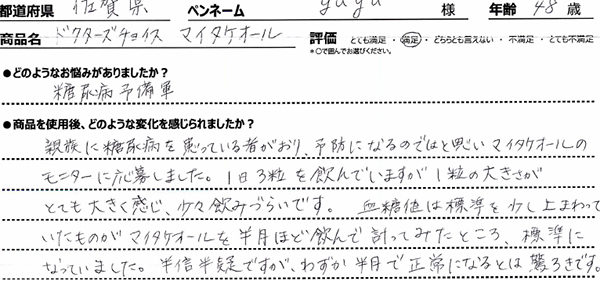 都道府県 佐賀県 ペンネーム yuyu 様 年齢 48 歳
商品名 ドクターズチョイス マイタケオール 評価 とても満足 ・ 満足 ・ どちらとも言えない ・ 不満足 ・ とても不満足
*○で囲んでお選びください。
●どのようなお悩みがありましたか？
糖尿病予備軍
●商品を使用後、どのような変化を感じられましたか？
親族に糖尿病を患っている者がおり、予防になるのではと思いマイタケオールの
モニターに応募しました。1日3粒を飲んでいますが1粒の大きさが
とても大きく感じ、少々飲みづらいです。 血糖値は標準を少し上まわって
いたものがマイタケオールを半月ほど飲んで計ってみたところ、標準に
なっていました。半信半疑ですが、わずか半月で正常になるとは驚ろきです。